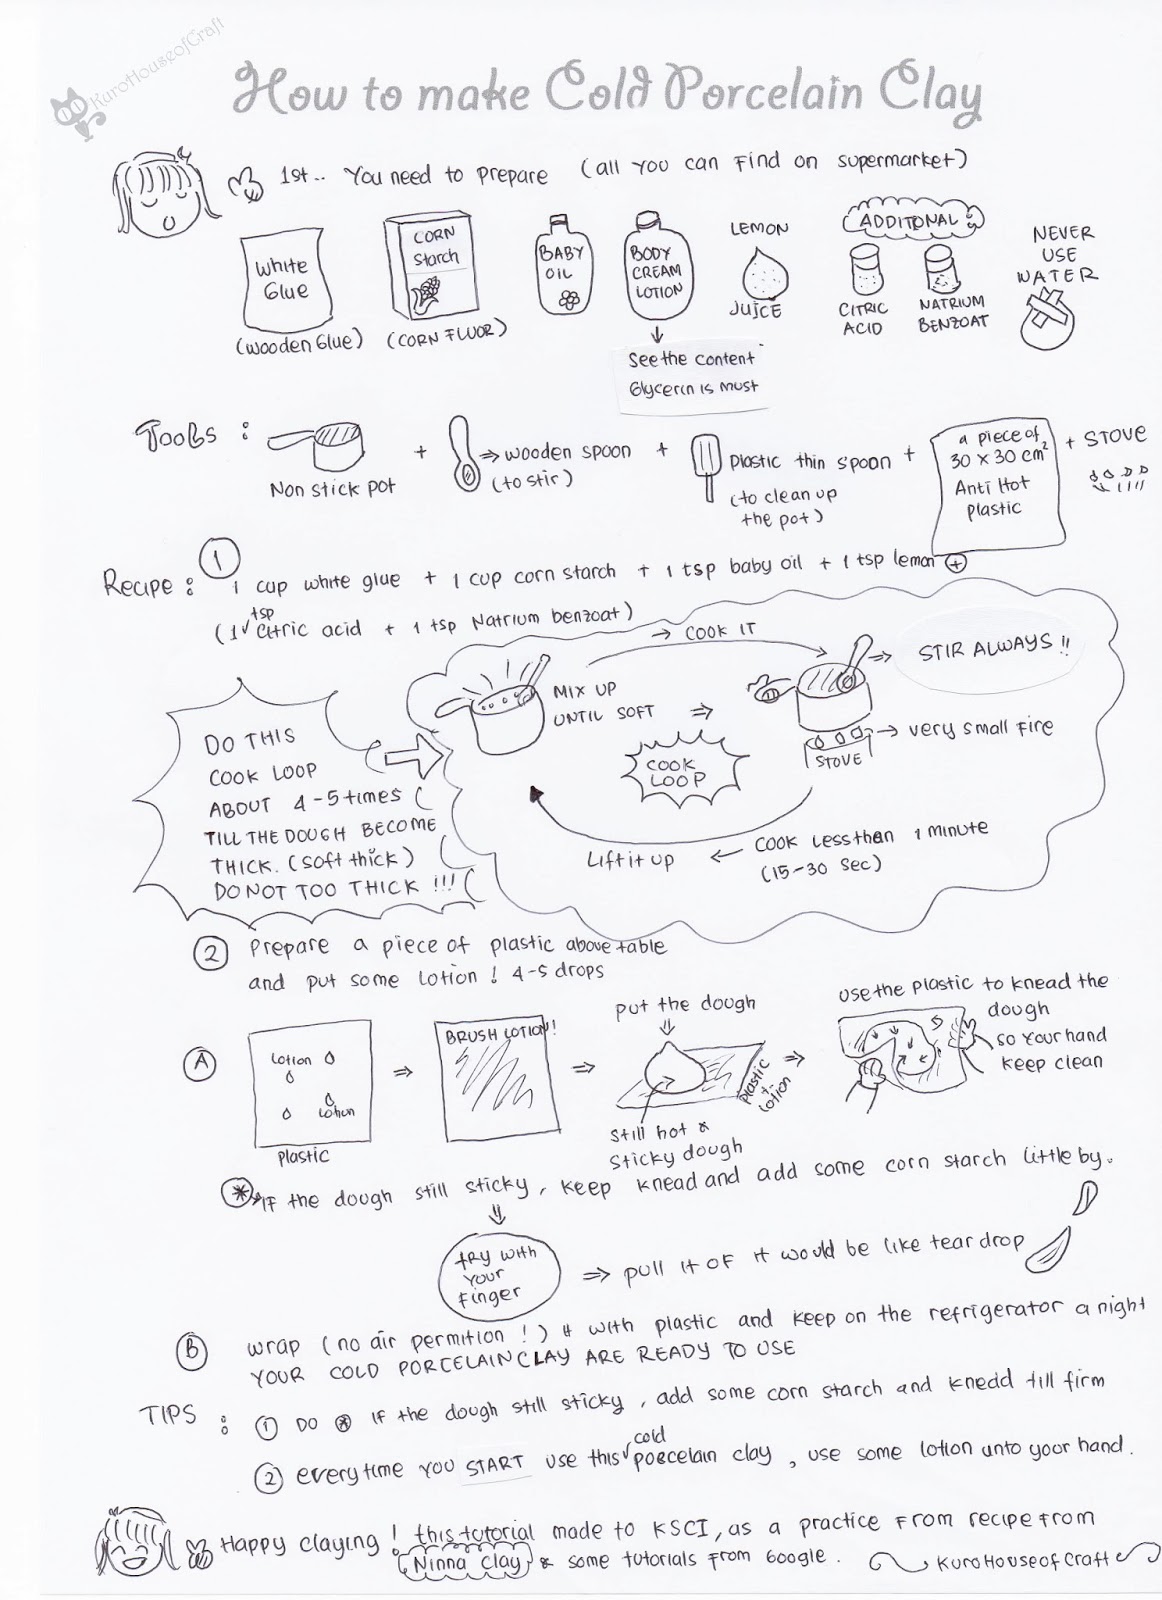 KuroHouseofCraft
How to make Cold Porcelain Clay
1st.. You need to prepare (all you can find on supermarket)
White Glue
(Wooden Glue)
CORN Starch
(CORN FLUOR)
BABY OIL
BODY CREAM LOTION
See the content
Glycerin is must
LEMON
JUICE
ADDITIONAL:
CITRIC ACID
NATRIUM BENZOAT
NEVER USE WATER
Tools :
Non stick pot
+
wooden spoon
(to stir)
+
plastic thin spoon
(to clean up
the pot)
+
a piece of
30 x 30 cm²
Anti Hot
plastic
+ STOVE
Recipe : ① 1 cup white glue + 1 cup corn starch + 1 tsp baby oil + 1 tsp lemon +
(1 tsp citric acid + 1 tsp Natrium benzoat)
COOK IT
MIX UP
UNTIL SOFT
STIR ALWAYS !!
very small fire
STOVE
COOK LOOP
COOK Less than 1 minute
(15-30 sec)
Lift it up
DO THIS
COOK LOOP
ABOUT 4-5 times
TILL THE DOUGH BECOME
THICK. (soft thick)
DO NOT TOO THICK !!!
② Prepare a piece of plastic above table
and put some lotion ! 4-5 drops
Ⓐ
Lotion
Lotion
plastic
BRUSH LOTION!
put the dough
plastic + lotion
still hot &
sticky dough
use the plastic to knead the
dough
so your hand
keep clean
* IF the dough still sticky, keep knead and add some corn starch little by.
try with
your
finger
pull it of it would be like tear drop
Ⓑ wrap (no air permition !) it with plastic and keep on the refrigerator a night
YOUR COLD PORCELAIN CLAY ARE READY TO USE
TIPS : ① DO * IF the dough still sticky, add some corn starch and knedd till firm
② everytime you START use this cold porcelain clay, use some lotion unto your hand.
Happy claying ! this tutorial made to KSCI, as a practice from recipe from
Ninna Clay & some tutorials from Google. KuroHouseofCraft